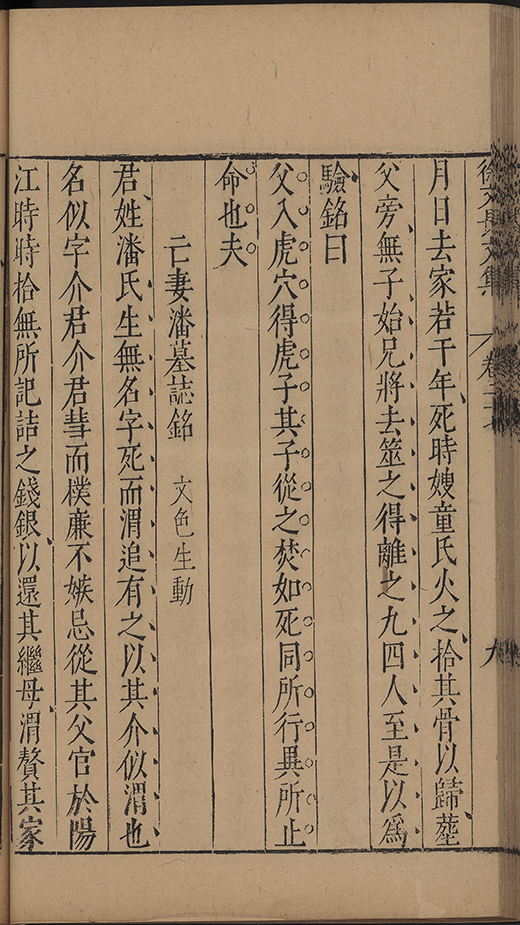 徐文長文集 卷二十七 九
月日去家若干年死時嫂童氏火之拾其骨以歸塟
父旁無子始兄將去筮之得離之九四人至是以爲
驗銘曰
父入虎穴得虎子其子從之焚如死同所行異所止
命也夫
亡妻潘墓誌銘 文色生動
君姓潘氏生無名字死而渭追有之以其介似渭也
名似字介君介君彗而樸廉不嫉忌從其父官於陽
江時時拾無所記詰之錢銀以還其繼母渭贅其家